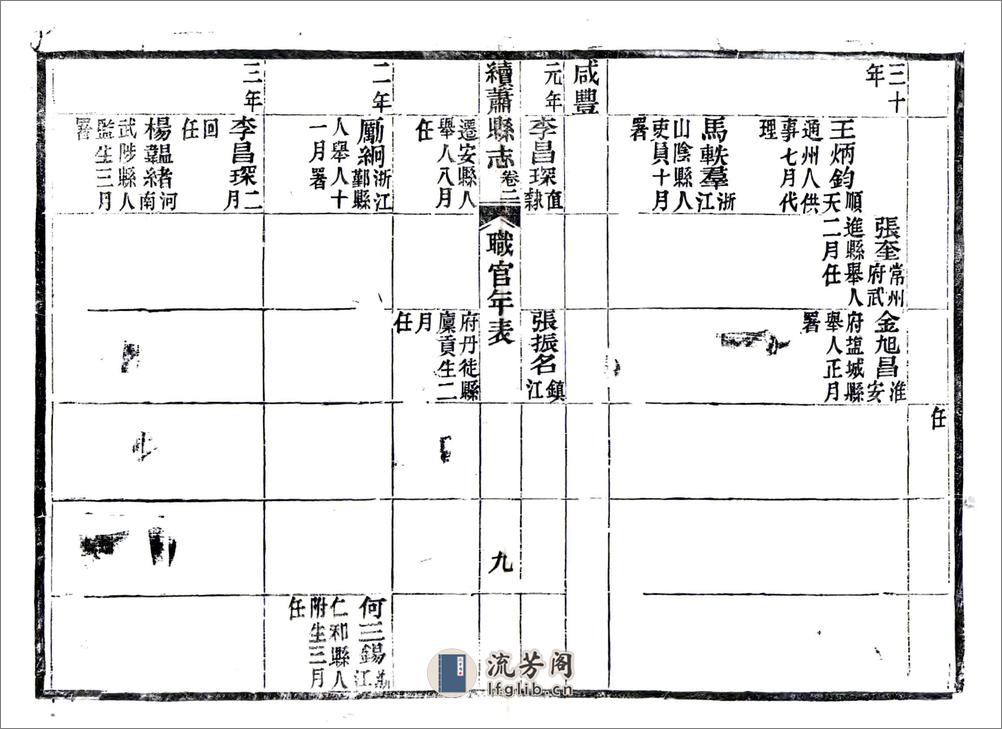 任
三十
年
王炳鈞順天
通州人供
事七月代
理
張奎常州府武
進縣舉人
二月任
金旭昌淮安
府塩城縣
舉人正月
署
馬軼羣浙江
山陰縣人
吏員十月
署
咸豐
元年
李昌琛直隸
遷安縣人
舉人八月
任
張振名鎮江
府丹徒縣
廩貢生二
月
任
續蕭縣志
卷二
職官年表
九
二年
勵絅浙江鄞縣
人舉人十
一月署
何三錫浙江
仁和縣人
附生三月
任
三年
李昌琛二月
回
任
楊韞緒河南
武陟縣人
監生三月
署
流芳阁
lfglib.cn